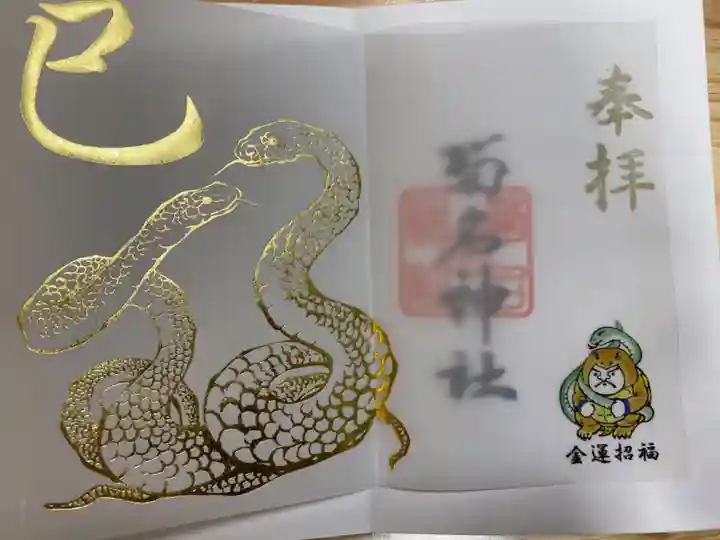 奉拝
菊名神社
金運招福
巳